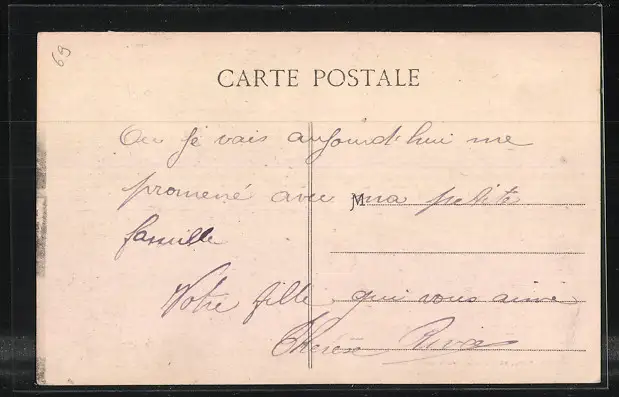 69
CARTE POSTALE
Ou je vais aujourd'hui me
promené avec ma petite
M
famille
Votre fille qui vous aime
Therese